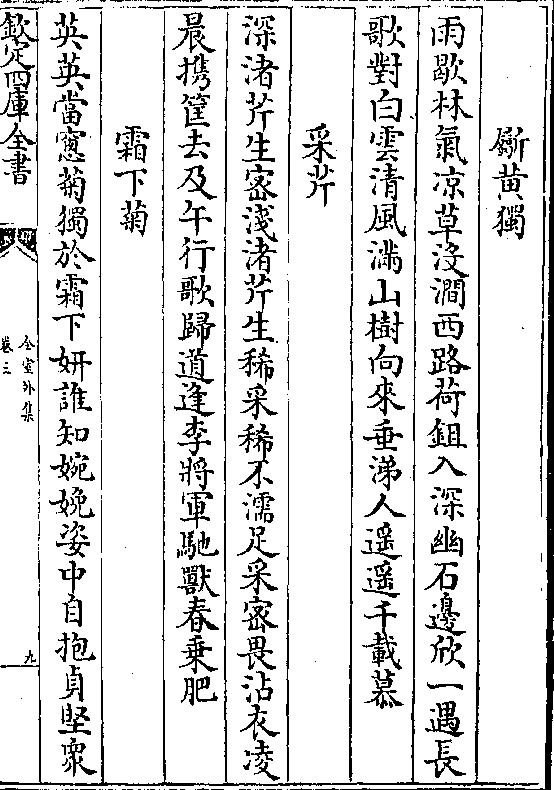 斸黄獨
雨歇林氣凉草沒澗西路荷鉏入深幽石邊欣一遇長
歌對白雲清風滿山樹向來垂涕人遥遥千載慕
采芹
深渚芹生宻淺渚芹生稀采稀不濡足采宻畏沾衣凌
晨携筐去及午行歌歸道逢李將軍馳獸春乗肥
霜下菊
英英當窻菊獨於霜下妍誰知婉娩姿中自抱貞堅衆
欽定四庫全書
全室外集
卷三
九